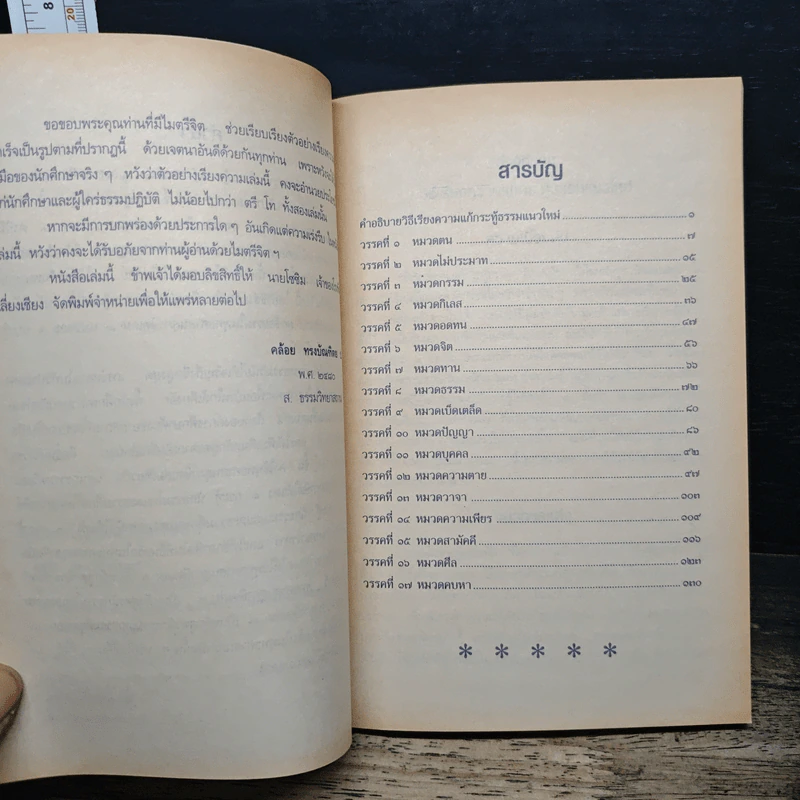 8
20
ขอขอบพระคุณท่านที่มีไมตรีจิต ช่วยเรียบเรียงตัวอย่างเรียงความ
เร็จเป็นรูปตามที่ปรากฏนี้ ด้วยเจตนาอันดีด้วยกันทุกท่าน เพราะหวัง
มือของนักศึกษาจริง ๆ หวังว่าตัวอย่างเรียงความเล่มนี้ คงจะอำนวย
นักศึกษาและผู้ใคร่ธรรมปฏิบัติ ไม่น้อยไปกว่า ตรี โท ทั้งสองเล่มนั้น
หากจะมีการบกพร่องด้วยประการใด ๆ อันเกิดแต่ความเร่งรีบ
เล่มนี้ หวังว่าคงจะได้รับอภัยจากท่านผู้อ่านด้วยไมตรีจิต ฯ
หนังสือเล่มนี้ ข้าพเจ้าได้มอบลิขสิทธิ์ให้ นายโซซิม
เลี่ยงเชียง จัดพิมพ์จำหน่ายเพื่อให้แพร่หลายต่อไป
คล้อย ทรงบัณฑิตย์
พ.ศ. ๒๔๘๐
ส. ธรรมวิทยา
สารบัญ
คำอธิบายวิธีเรียงความแก้กระทู้ธรรมแนวใหม่ ๑
วรรคที่ ๑ หมวดตน ๗
วรรคที่ ๒ หมวดไม่ประมาท ๑๕
วรรคที่ ๓ หมวดกรรม ๒๕
วรรคที่ ๔ หมวดกิเลส ๓๖
วรรคที่ ๕ หมวดอดทน ๔๗
วรรคที่ ๖ หมวดจิต ๕๖
วรรคที่ ๗ หมวดทาน ๖๖
วรรคที่ ๘ หมวดธรรม ๗๒
วรรคที่ ๙ หมวดเบ็ดเตล็ด ๘๐
วรรคที่ ๑๐ หมวดปัญญา ๘๖
วรรคที่ ๑๑ หมวดบุคคล ๙๒
วรรคที่ ๑๒ หมวดความตาย ๙๗
วรรคที่ ๑๓ หมวดวาจา ๑๐๓
วรรคที่ ๑๔ หมวดความเพียร ๑๐๙
วรรคที่ ๑๕ หมวดสามัคคี ๑๑๖
วรรคที่ ๑๖ หมวดศีล ๑๒๓
วรรคที่ ๑๗ หมวดคบหา ๑๓๐
* * * * *